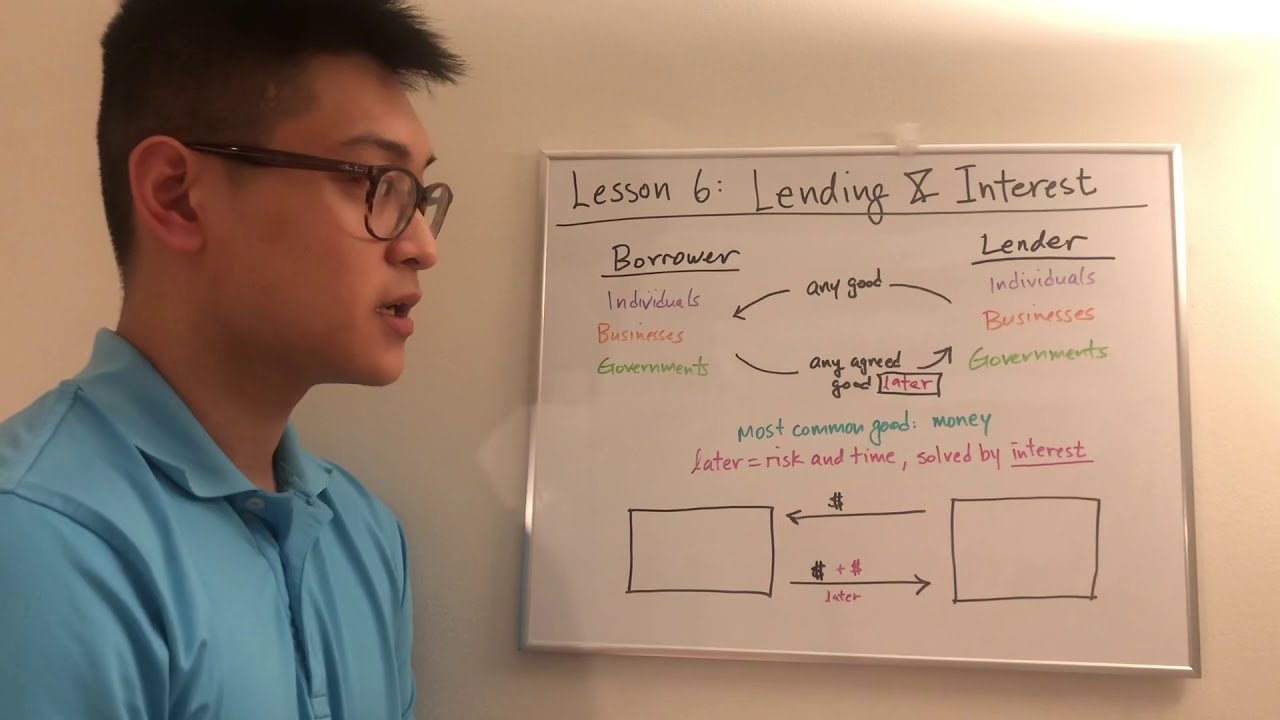 Lesson 6: Lending & Interest
Borrower
Lender
Individuals
any good
Individuals
Businesses
Businesses
Governments
any agreed
good later
Governments
Most common good: money
later = risk and time, solved by interest
$
$ + $
later